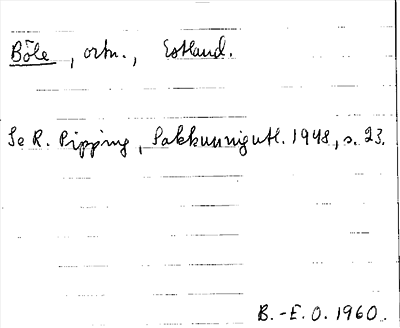 Böle, ortn., Estland.
Se R. Pipping, Sakkunnigutl. 1948, s. 23.
B.-E. O. 1960.